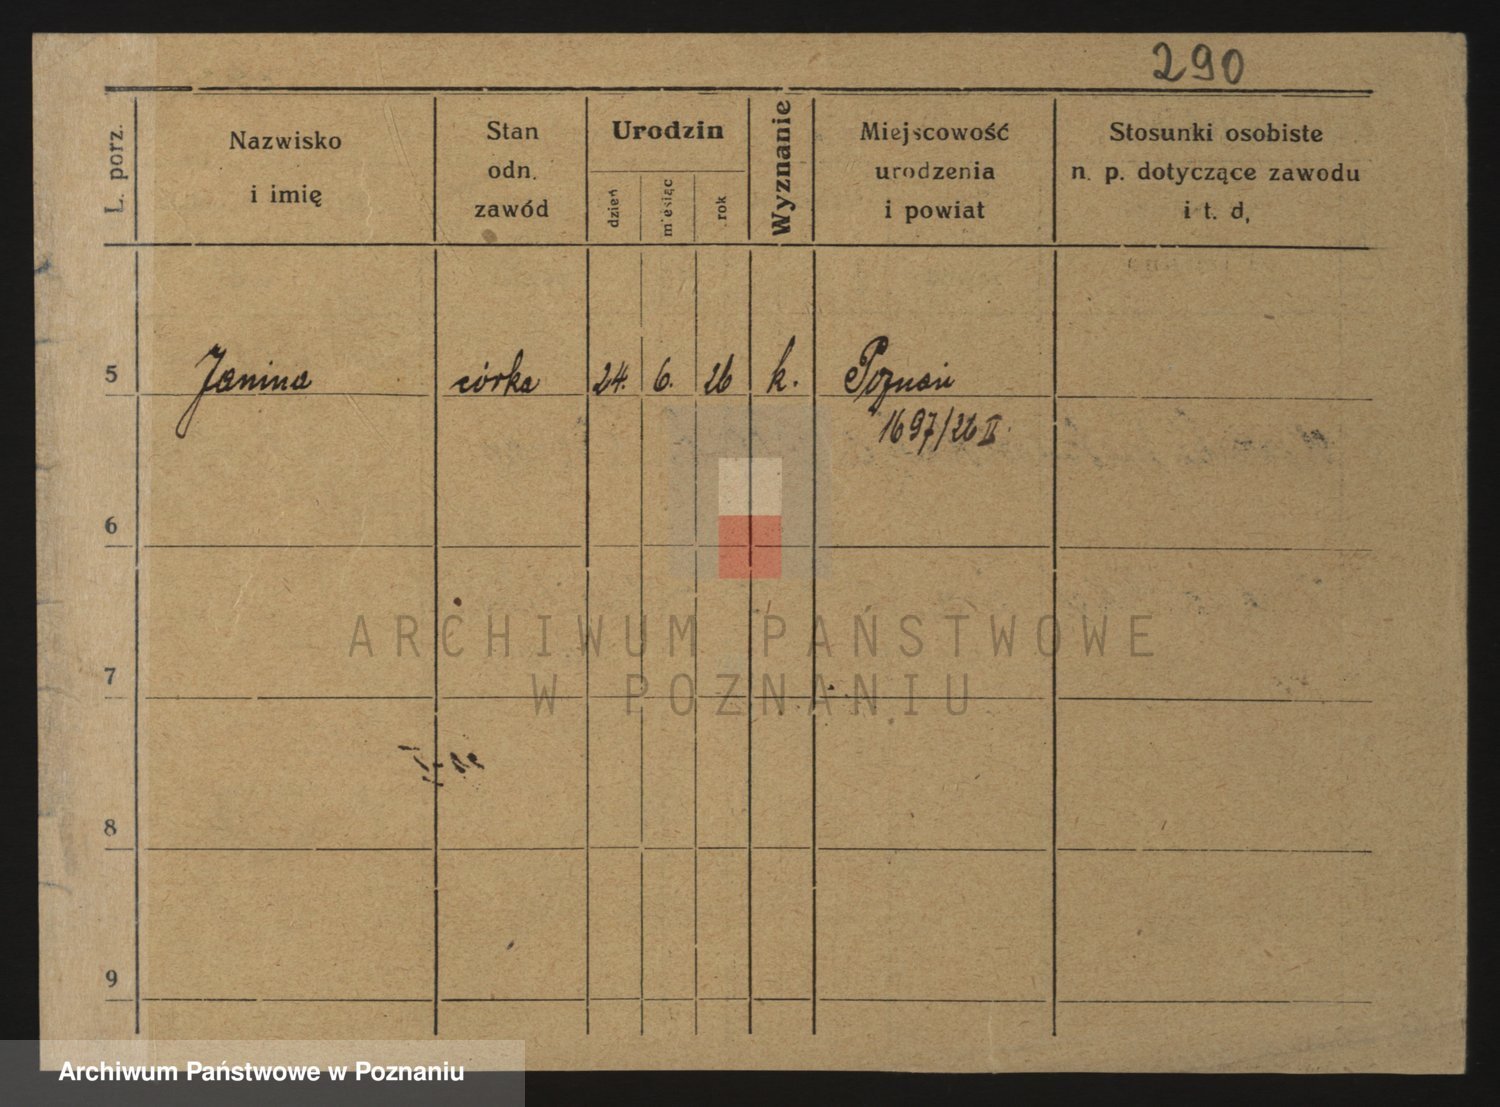 290
L. porz.
Nazwisko
i imię
Stan
odn.
zawód
Urodzin
dzień
miesiąc
rok
Wyznanie
Miejscowość
urodzenia
i powiat
Stosunki osobiste
n. p. dotyczące zawodu
i t. d,
5 Janina córka 24. 6. 26 k. Poznań
1697/26 II
6
7
8
9
ARCHIWUM PAŃSTWOWE
W POZNANIU
Archiwum Państwowe w Poznaniu